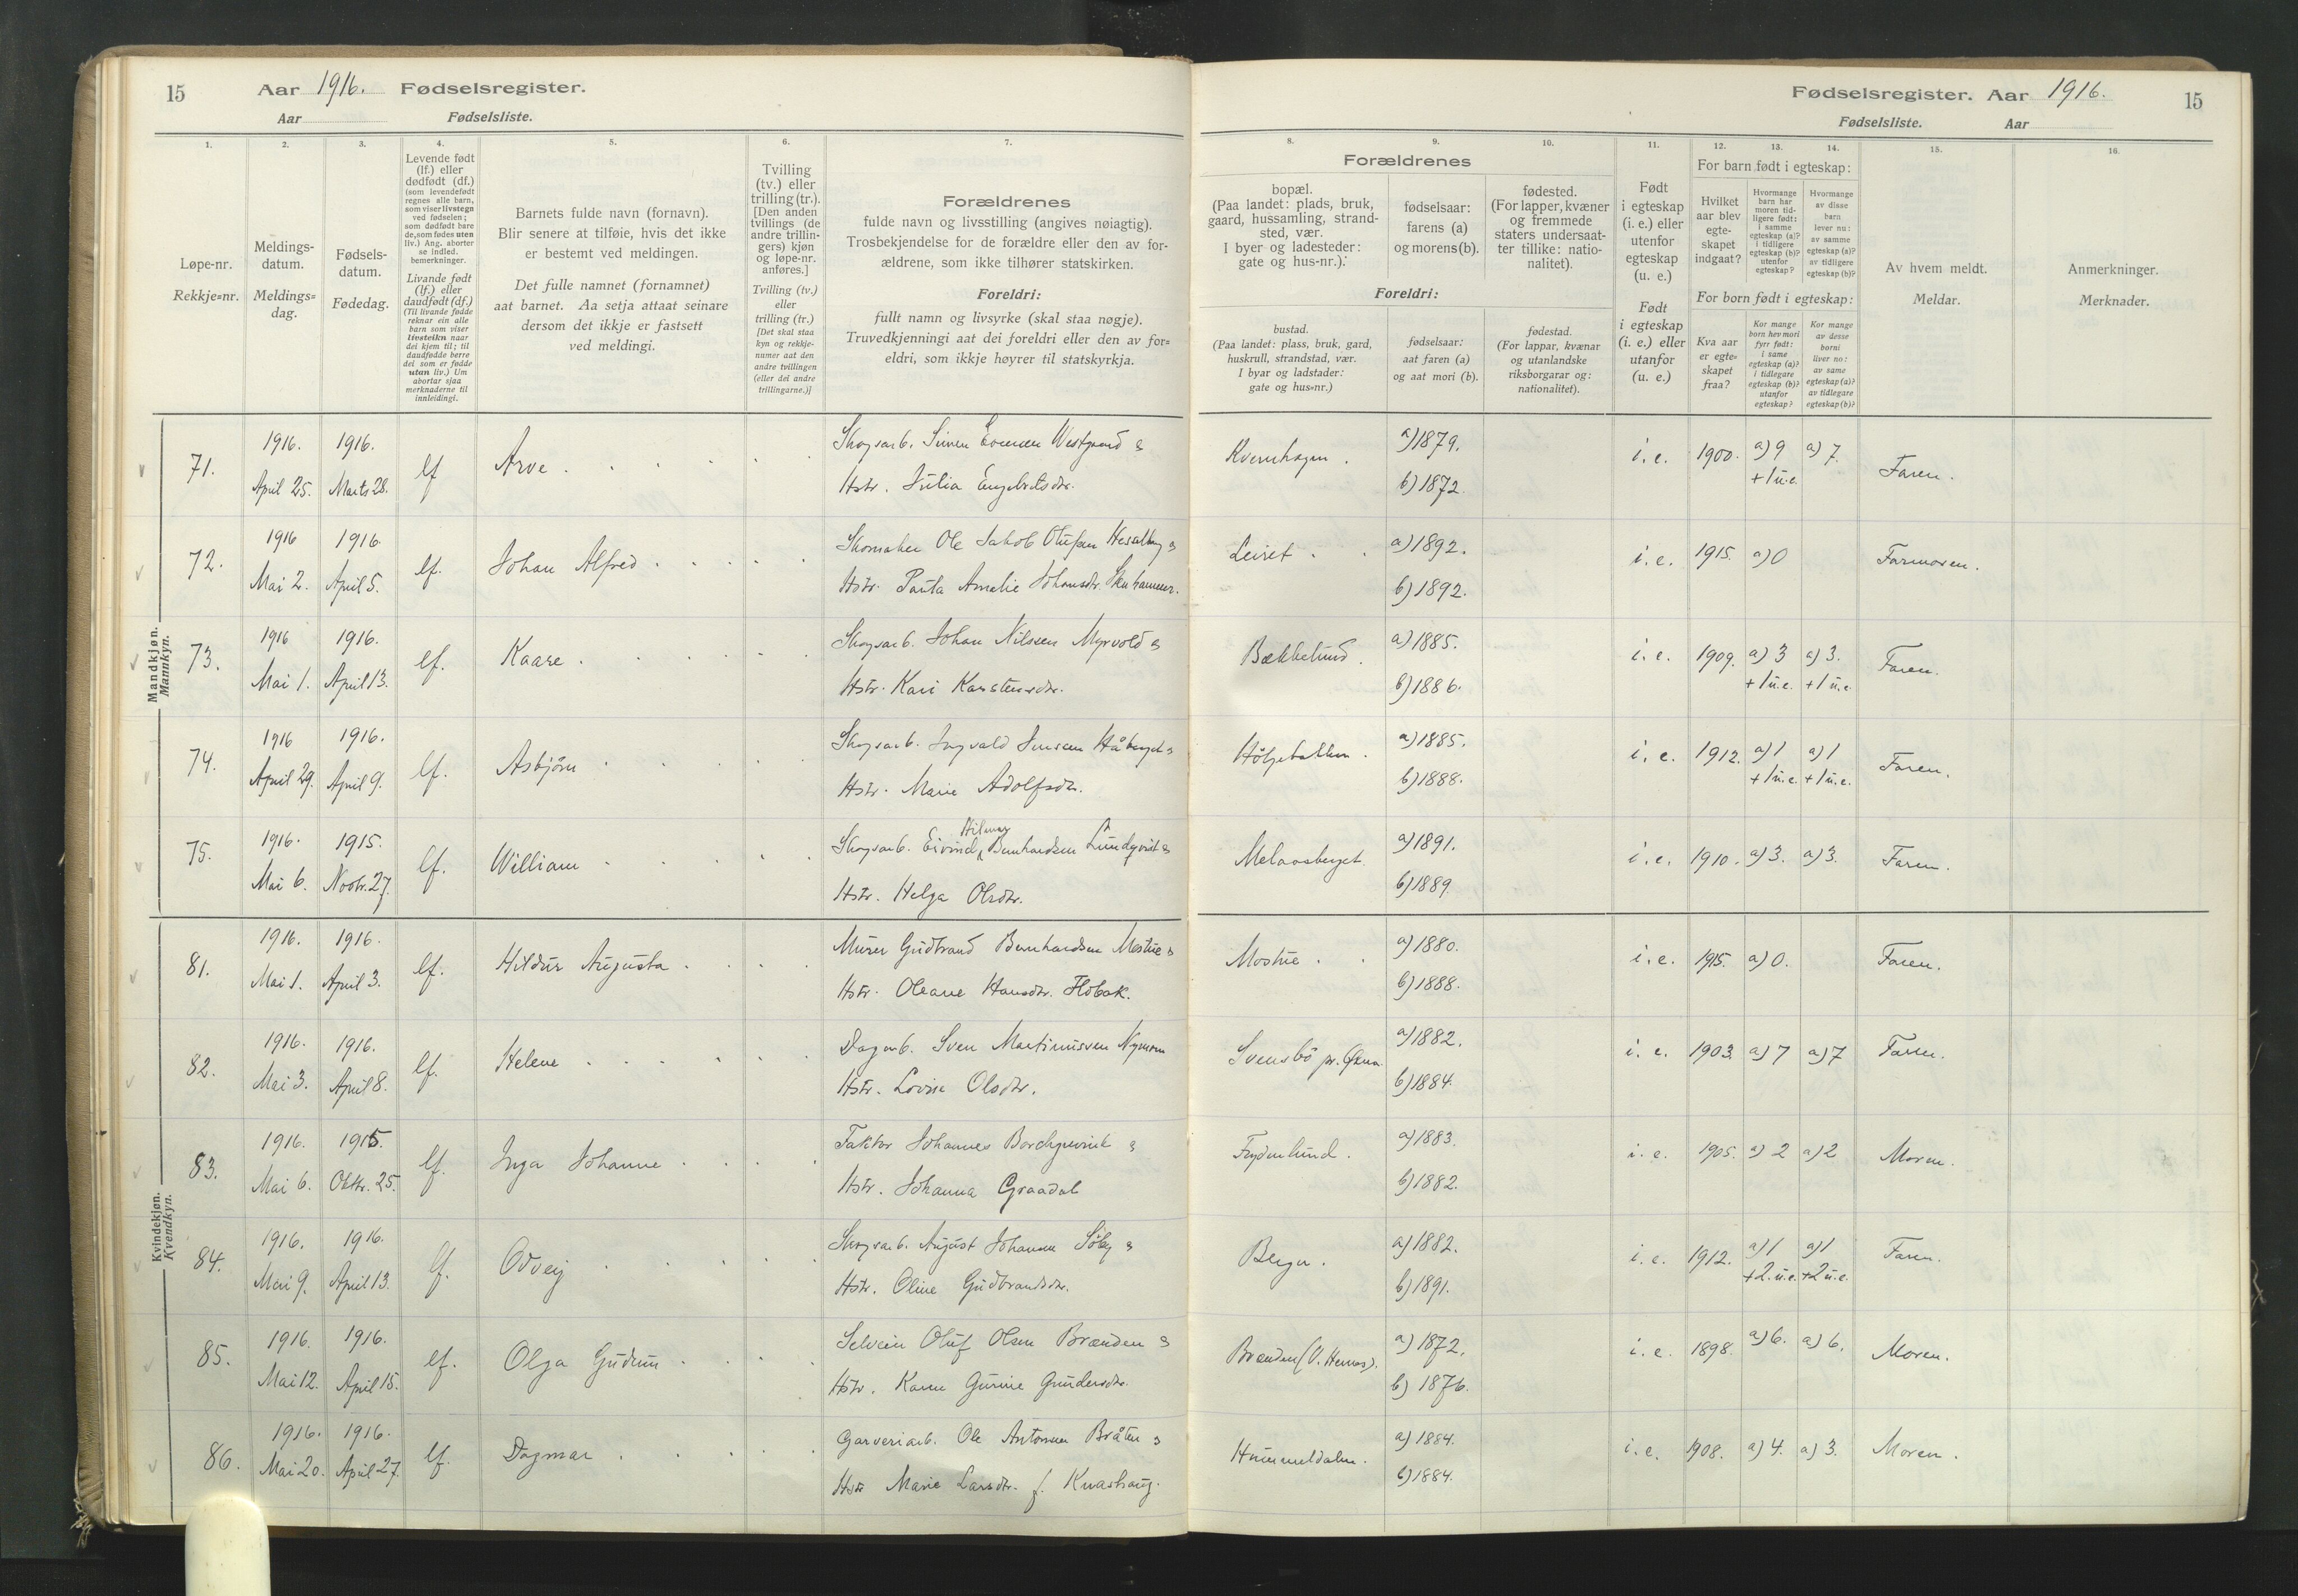 15 Aar 1916. Fødselsregister.
Aar Fødselsliste.
Fødselsregister. Aar 1916. 15
Fødselsliste. Aar
1. 2. 3. 4. 5. 6. 7. 8. 9. 10. 11. 12. 13. 14. 15. 16.
Løpe-nr.
Rekkje=nr.
Meldings-
datum.
Meldings=
dag.
Fødsels-
datum.
Fødedag.
Levende født
(lf.) eller
dødfødt (df.)
(som levendefødt
regnes alle barn,
som viser livstegn
ved fødselen;
som dødfødt bare
de, som fødes uten
liv.) Ang. aborter
se indled.
bemerkninger.
Livande født
(lf.) eller
daudfødt (df.)
(Til livande fødde
reknar ein alle
barn som viser
livsteikn naar
dei kjem til; til
daudfødde berre
dei som er fødde
utan liv.) Um
abortar sjaa
merknaderne til
innleidingi.
Barnets fulde navn (fornavn).
Blir senere at tilføie, hvis det ikke
er bestemt ved meldingen.
Det fulle namnet (fornamnet)
aat barnet. Aa setja attaat seinare
dersom det ikkje er fastsett
ved meldingi.
Tvilling
(tv.) eller
trilling (tr.).
[Den anden
tvillings (de
andre trillin-
gers) kjøn
og løpe-nr.
anføres.]
Tvilling (tv.)
eller
trilling (tr.)
[Det skal staa
kyn og rekkje-
numer aat den
andre tvillingen
(eller dei andre
trillingarne.)]
Forældrenes
fulde navn og livsstilling (angives nøiagtig).
Trosbekjendelse for de forældre eller den av for-
ældrene, som ikke tilhører statskirken.
Foreldri:
fullt namn og livsyrke (skal staa nøgje).
Truvedkjenningi aat dei foreldri eller den av for=
eldri, som ikkje høyrer til statskyrkja.
Forældrenes
bopæl.
(Paa landet: plads, bruk,
gaard, hussamling, strand-
sted, vær.
I byer og ladesteder:
gate og hus-nr.).
fødselsaar:
farens (a)
og morens (b).
fødested.
(For lapper, kvæner
og fremmede
staters undersaat-
ter tillike: natio-
nalitet).
Foreldri:
bustad.
(Paa landet: plass, bruk, gard,
huskrull, strandstad, vær.
I byar og ladstader:
gate og hus=nr.)
fødselsaar:
aat faren (a)
og aat mori (b).
fødestad.
(For lappar, kvænar
og utanlandske
riksborgarar og:
nationalitet).
Født
i egteskap
(i. e.) eller
utenfor
egteskap
(u. e.)
Født
i egteskap
(i. e.) eller
utanfor
(u. e.)
For barn født i egteskap:
Hvilket
aar blev
egte-
skapet
indgaat?
Hvormange
barn har
moren tid-
ligere født:
i samme
egteskap (a)?
i tidligere
egteskap (b)?
utenfor
egteskap?
Hvormange
av disse
barn
lever nu:
av samme
egteskap (a)?
av tidligere
egteskap (b)?
For born født i egteskap:
Kva aar
er egte=
skapet
fraa?
Kor mange
born hev mori
fyrr født:
i same
egteskap (a)?
i tidlegare
egteskap (b)?
utanfor
egteskap?
Kor mange
av desse
borni
liver no:
av same
egteskap (a)?
av tidlegare
egteskap (b)?
Av hvem meldt.
Meldar.
Anmerkninger.
Merknader.
Mandkjøn.
Mannkyn.
71. 1916. April 25. 1916. Marts 28. lf Arve
Skogsarb. Simen Evensen Westgaard &
Hstr. Julia Engebretsdtr.
Kvernhagen. a) 1879. b) 1872. i. e. 1900. a) 9 + 1 u.e. a) 7. Faren.
72. 1916 Mai 2. 1916. April 5. lf. Johan Alfred
Skomaker Ole Jakob Olufsen Hesselberg &
Hstr. Paula Amalie Johansdr.
Leiret a) 1892. b) 1892. i. e. 1915. a) 0 Farmoren.
73. 1916 Mai 1. 1916. April 13. lf. Kaare
Skogsarb. Johan Nilssen Myrvold &
Hstr. Kari Karstensdtr.
Bækkelund. a) 1885. b) 1886. i. e. 1909. a) 3 + 1 u.e. a) 3. + 1 u.e. Faren.
74. 1916 April 29. 1916. April 9. lf. Asbjørn
Skogsarb. Ingvald Jensen Håberget &
Hstr. Marie Adolfsdr.
a) 1885. b) 1888. i. e. 1912. a) 1 + 1 u.e. a) 1 + 1 u.e. Faren.
75. 1916. Mai 6. 1915. Novbr. 27. lf. William
Hilmar
Skogsarb. Eivind Bernhardsen Lundqvist &
Hstr. Helga Olsdtr.
Melaasberget. a) 1891. b) 1889. i. e. 1910. a) 3. a) 3. Faren.
Kvindekjøn.
Kvendkyn.
81. 1916. Mai 1. 1916. April 3. lf. Hildur Augusta
Murer Gudbrand Bernhardsen Mostue &
Hstr. Oleane Hansdtr. Flobak.
Mostue a) 1880. b) 1888. i. e. 1915. a) 0. Faren.
82. 1916. Mai 3. 1916. April 8. lf. Helene
Dagarb. Sven Martinusven Nymoen
Hstr. Lovise Olsdtr.
Svensbö a) 1882. b) 1884. i. e. 1903. a) 7 a) 7 Faren.
83. 1916. Mai 6. 1915. Oktbr. 25. lf. Inga Johanne
Faktor Johannes Borchgrevink &
Hstr. Johanna Graadal
Frydenlund. a) 1883. b) 1882. i. e. 1905. a) 2 a) 2 Moren.
84. 1916. Mai 9. 1916. April 13. lf. Odveig
Skogsarb. August Johansen Söby &
Hstr. Oline Gudbrandsdtr.
a) 1882. b) 1891. i. e. 1912. a) 1 + 2 u.e. a) 1 + 2 u.e. Faren.
85. 1916. Mai 12. 1916. April 15. lf. Olga Gudrun
Selveier Oluf Olsen Brænden &
Hstr. Karen Gurine Gundersdtr.
Brænden (V. Hernes). a) 1872. b) 1876. i. e. 1898. a) 6. a) 6. Moren.
86. 1916. Mai 20. 1916. April 27. lf. Dagmar
Garveriarb. Ole Antonsen Bråten &
Hstr Marie Larsdtr. f. Kvashaug.
Hummeldalen. a) 1884. b) 1884. i. e. 1908. a) 4. a) 3. Moren.